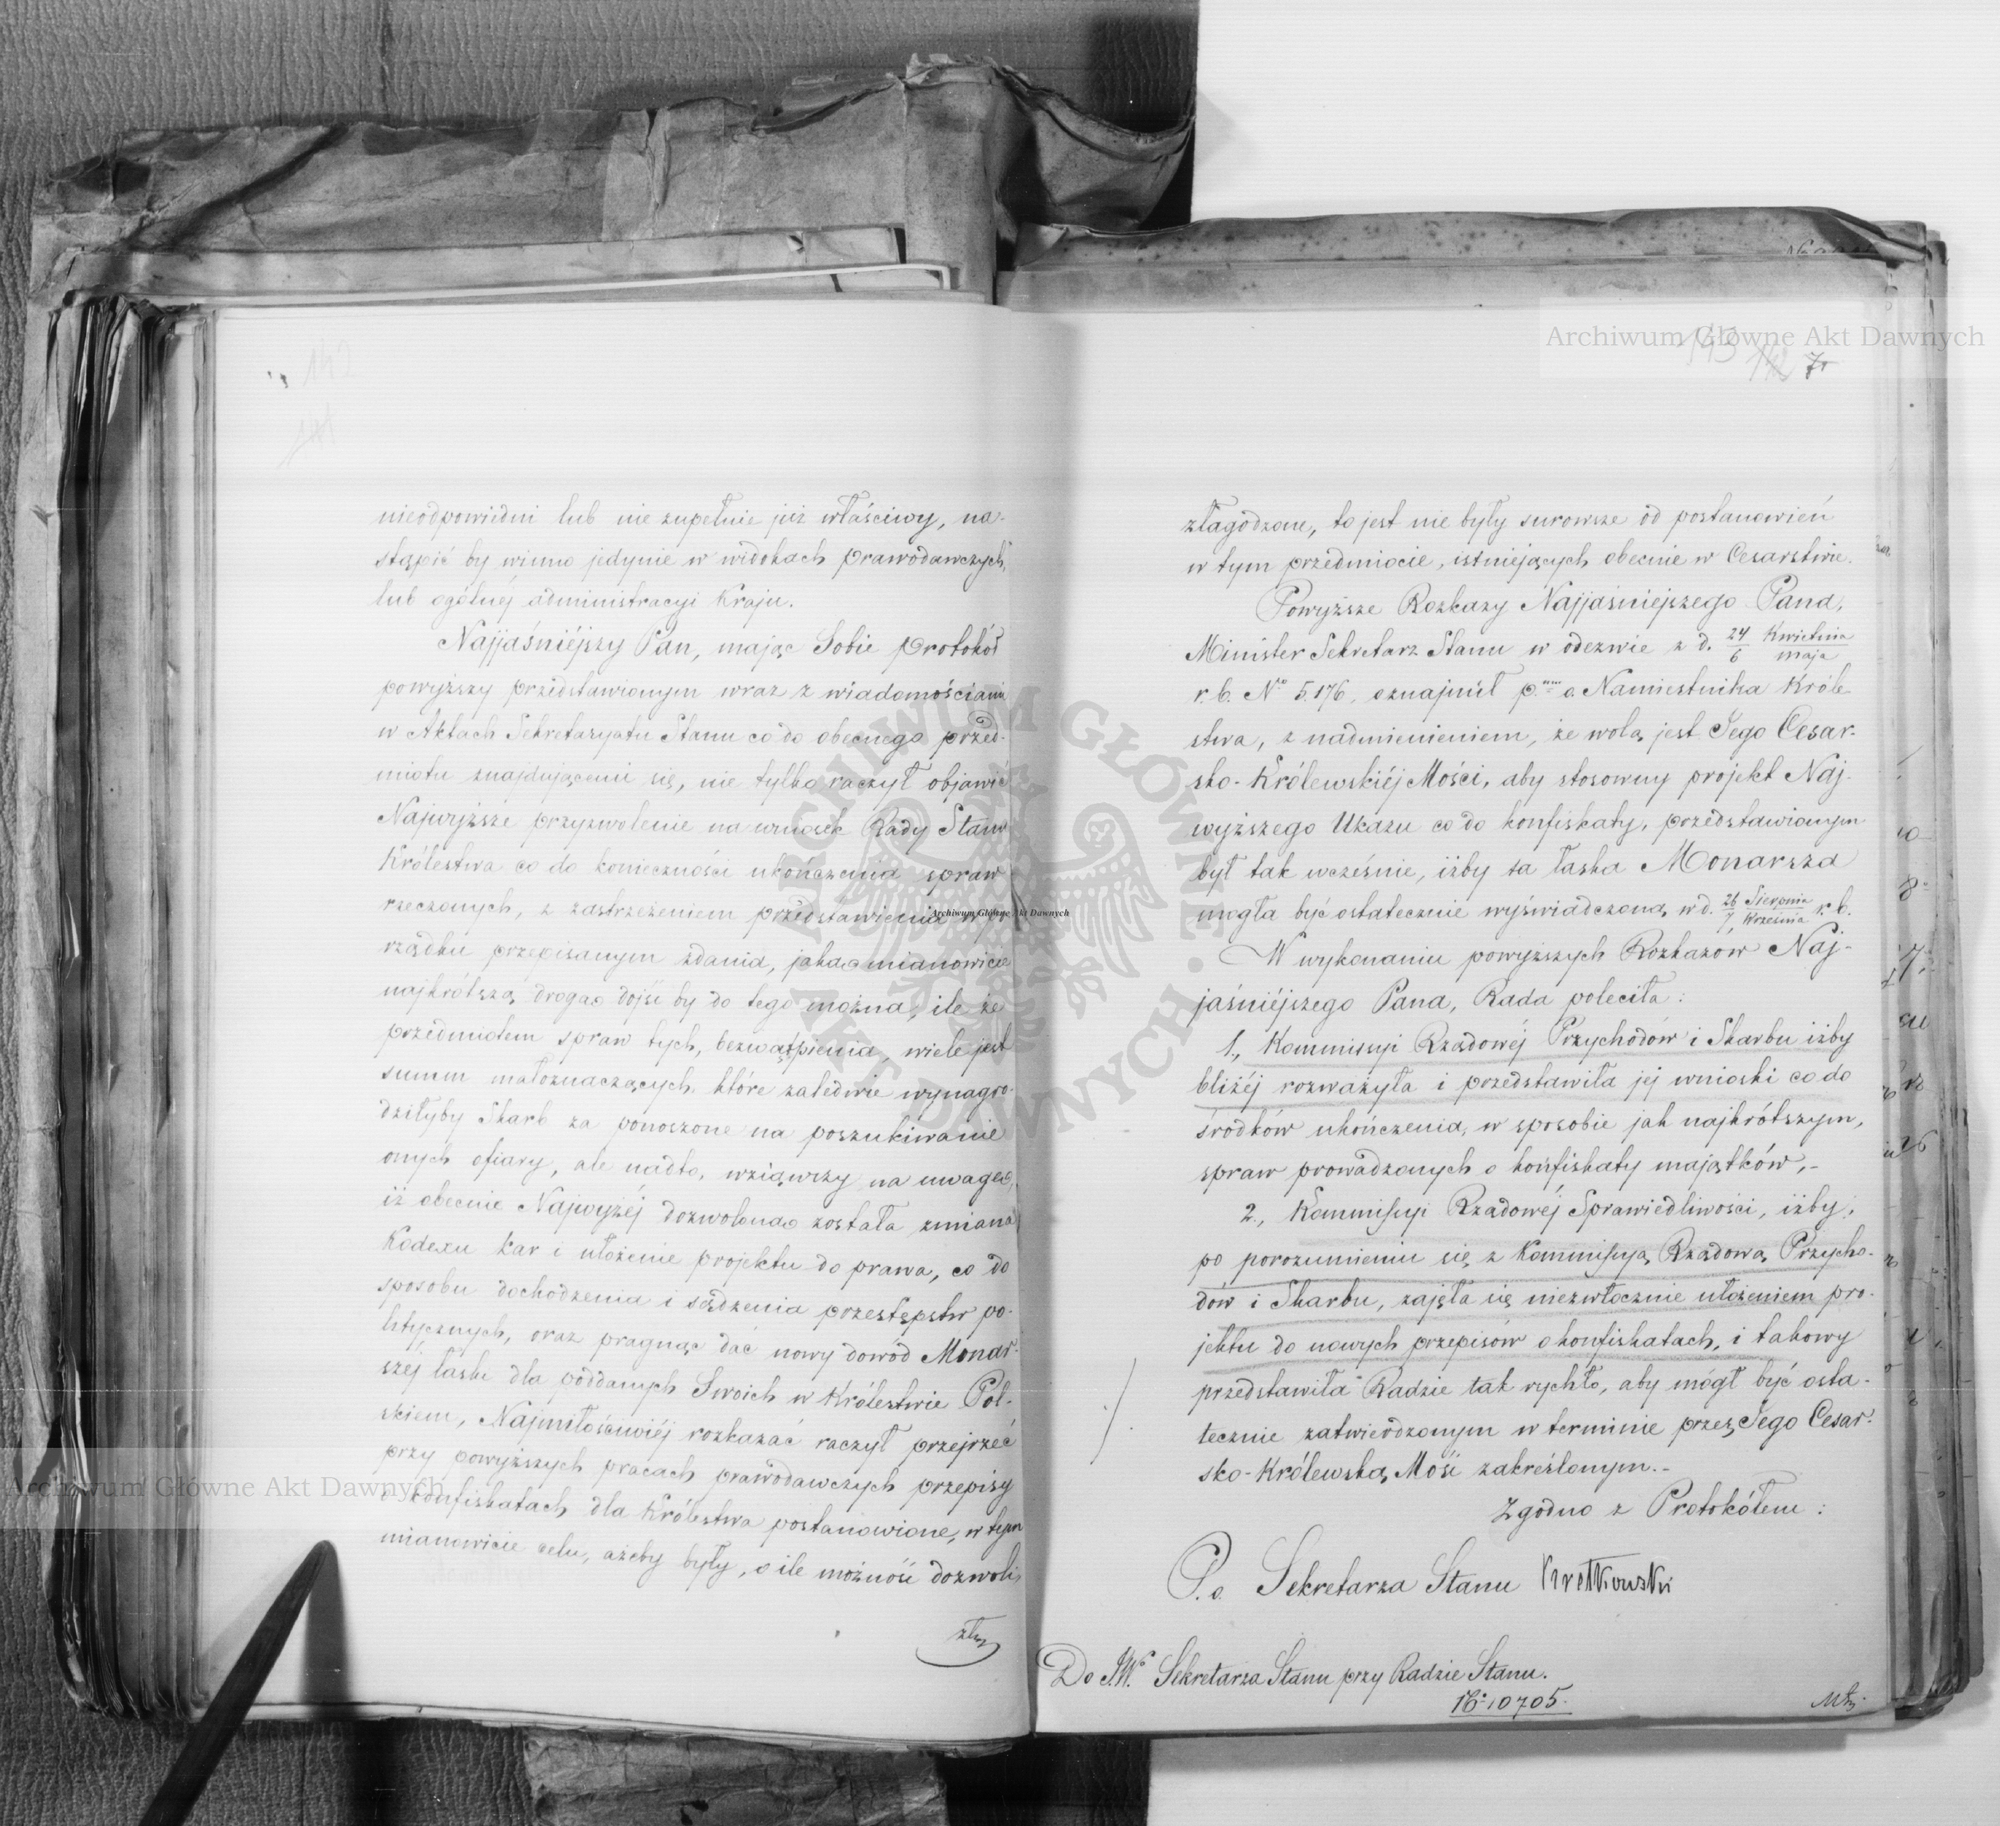 142
141
nieodpowiedni lub nie zupełnie już właściwy, na-
stąpić by winno jedynie w widokach prawodawczych,
lub ogólnéj administracyi Kraju.
Najjaśniéjszy Pan, mając Sobie protokół
powyższy przedstawionym wraz z wiadomościami
w Aktach Sekretaryatu Stanu co do obecnego przed-
miotu znajdującemi się, nie tylko raczył objawić
Najwyższe przyzwolenie na wniosek Rady Stanu
Królestwa co do konieczności ukończenia spraw
rzeczonych, z zastrzeżeniem przedstawienia w po-
rządku przepisanym zdania, jaką mianowicie
najkrótszą drogą dojść by do tego można, ile że
przedmiotem spraw tych, bezwątpienia, wiele jest
summ małoznaczących które zaledwie wynagro-
dziłyby Skarb za ponoszone na poszukiwanie
onych ofiary, ale nadto, wziąwszy na uwagę,
iż obecnie Najwyżéj dozwoloną została zmiana
Kodexu kar i ułożenie projektu do prawa, co do
sposobu dochodzenia i sądzenia przestępstw po-
litycznych, oraz pragnąc dać nowy dowód Monar-
széj łaski dla poddanych Swoich w Królestwie Pol-
skiem, Najmiłościwiéj rozkazać raczył przejrzeć
przy powyższych pracach prawodawczych przepisy
o konfiskatach dla Królestwa postanowione, w tym
mianowicie celu, ażeby były, o ile możność dozwoli,
złag
143 142 7
złagodzone, to jest nie były surowsze od postanowień
w tym przedmiocie, istniejących obecnie w Cesarstwie.
Powyższe Rozkazy Najjaśniejszego Pana,
Minister Sekretarz Stanu w odezwie z d. 24 Kwietnia / 6 maja
r. b. No 5.176, oznajmił p. o. Namiestnika Króle-
stwa, z nadmienieniem, że wolą jest Jego Cesar-
sko-Królewskiéj Mości, aby stosowny projekt Naj-
wyższego Ukazu co do konfiskaty, przedstawionym
był tak wcześnie, iżby ta łaska Monarsza
mogła być ostatecznie wyświadczoną w d. 26 Sierpnia / 7 Września r. b.
W wykonaniu powyższych Rozkazów Naj-
jaśniéjszego Pana, Rada poleciła:
1., Kommissyi Rządowéj Przychodów i Skarbu iżby
bliżéj rozważyła i przedstawiła jéj wnioski co do
środków ukończenia, w sposobie jak najkrótszym,
spraw prowadzonych o konfiskaty majątków,-
2., Kommissyi Rządowéj Sprawiedliwości, iżby,
po porozumieniu się z Kommissyą Rządową Przycho-
dów i Skarbu, zajęła się niezwłocznie ułożeniem pro-
jektu do nowych przepisów o konfiskatach, i takowy
przedstawiła Radzie tak rychło, aby mógł być osta-
tecznie zatwierdzonym w terminie przez Jego Cesar-
sko-Królewską Mość zakreślonym.-
Zgodno z Protokółem:
P. o. Sekretarza Stanu Kretkowski
Do J.W. Sekretarza Stanu przy Radzie Stanu.
No 10705.
Archiwum Główne Akt Dawnych
Archiwum Główne Akt Dawnych
Archiwum Główne Akt Dawnych
ARCHIWUM GŁÓWNE AKT DAWNYCH